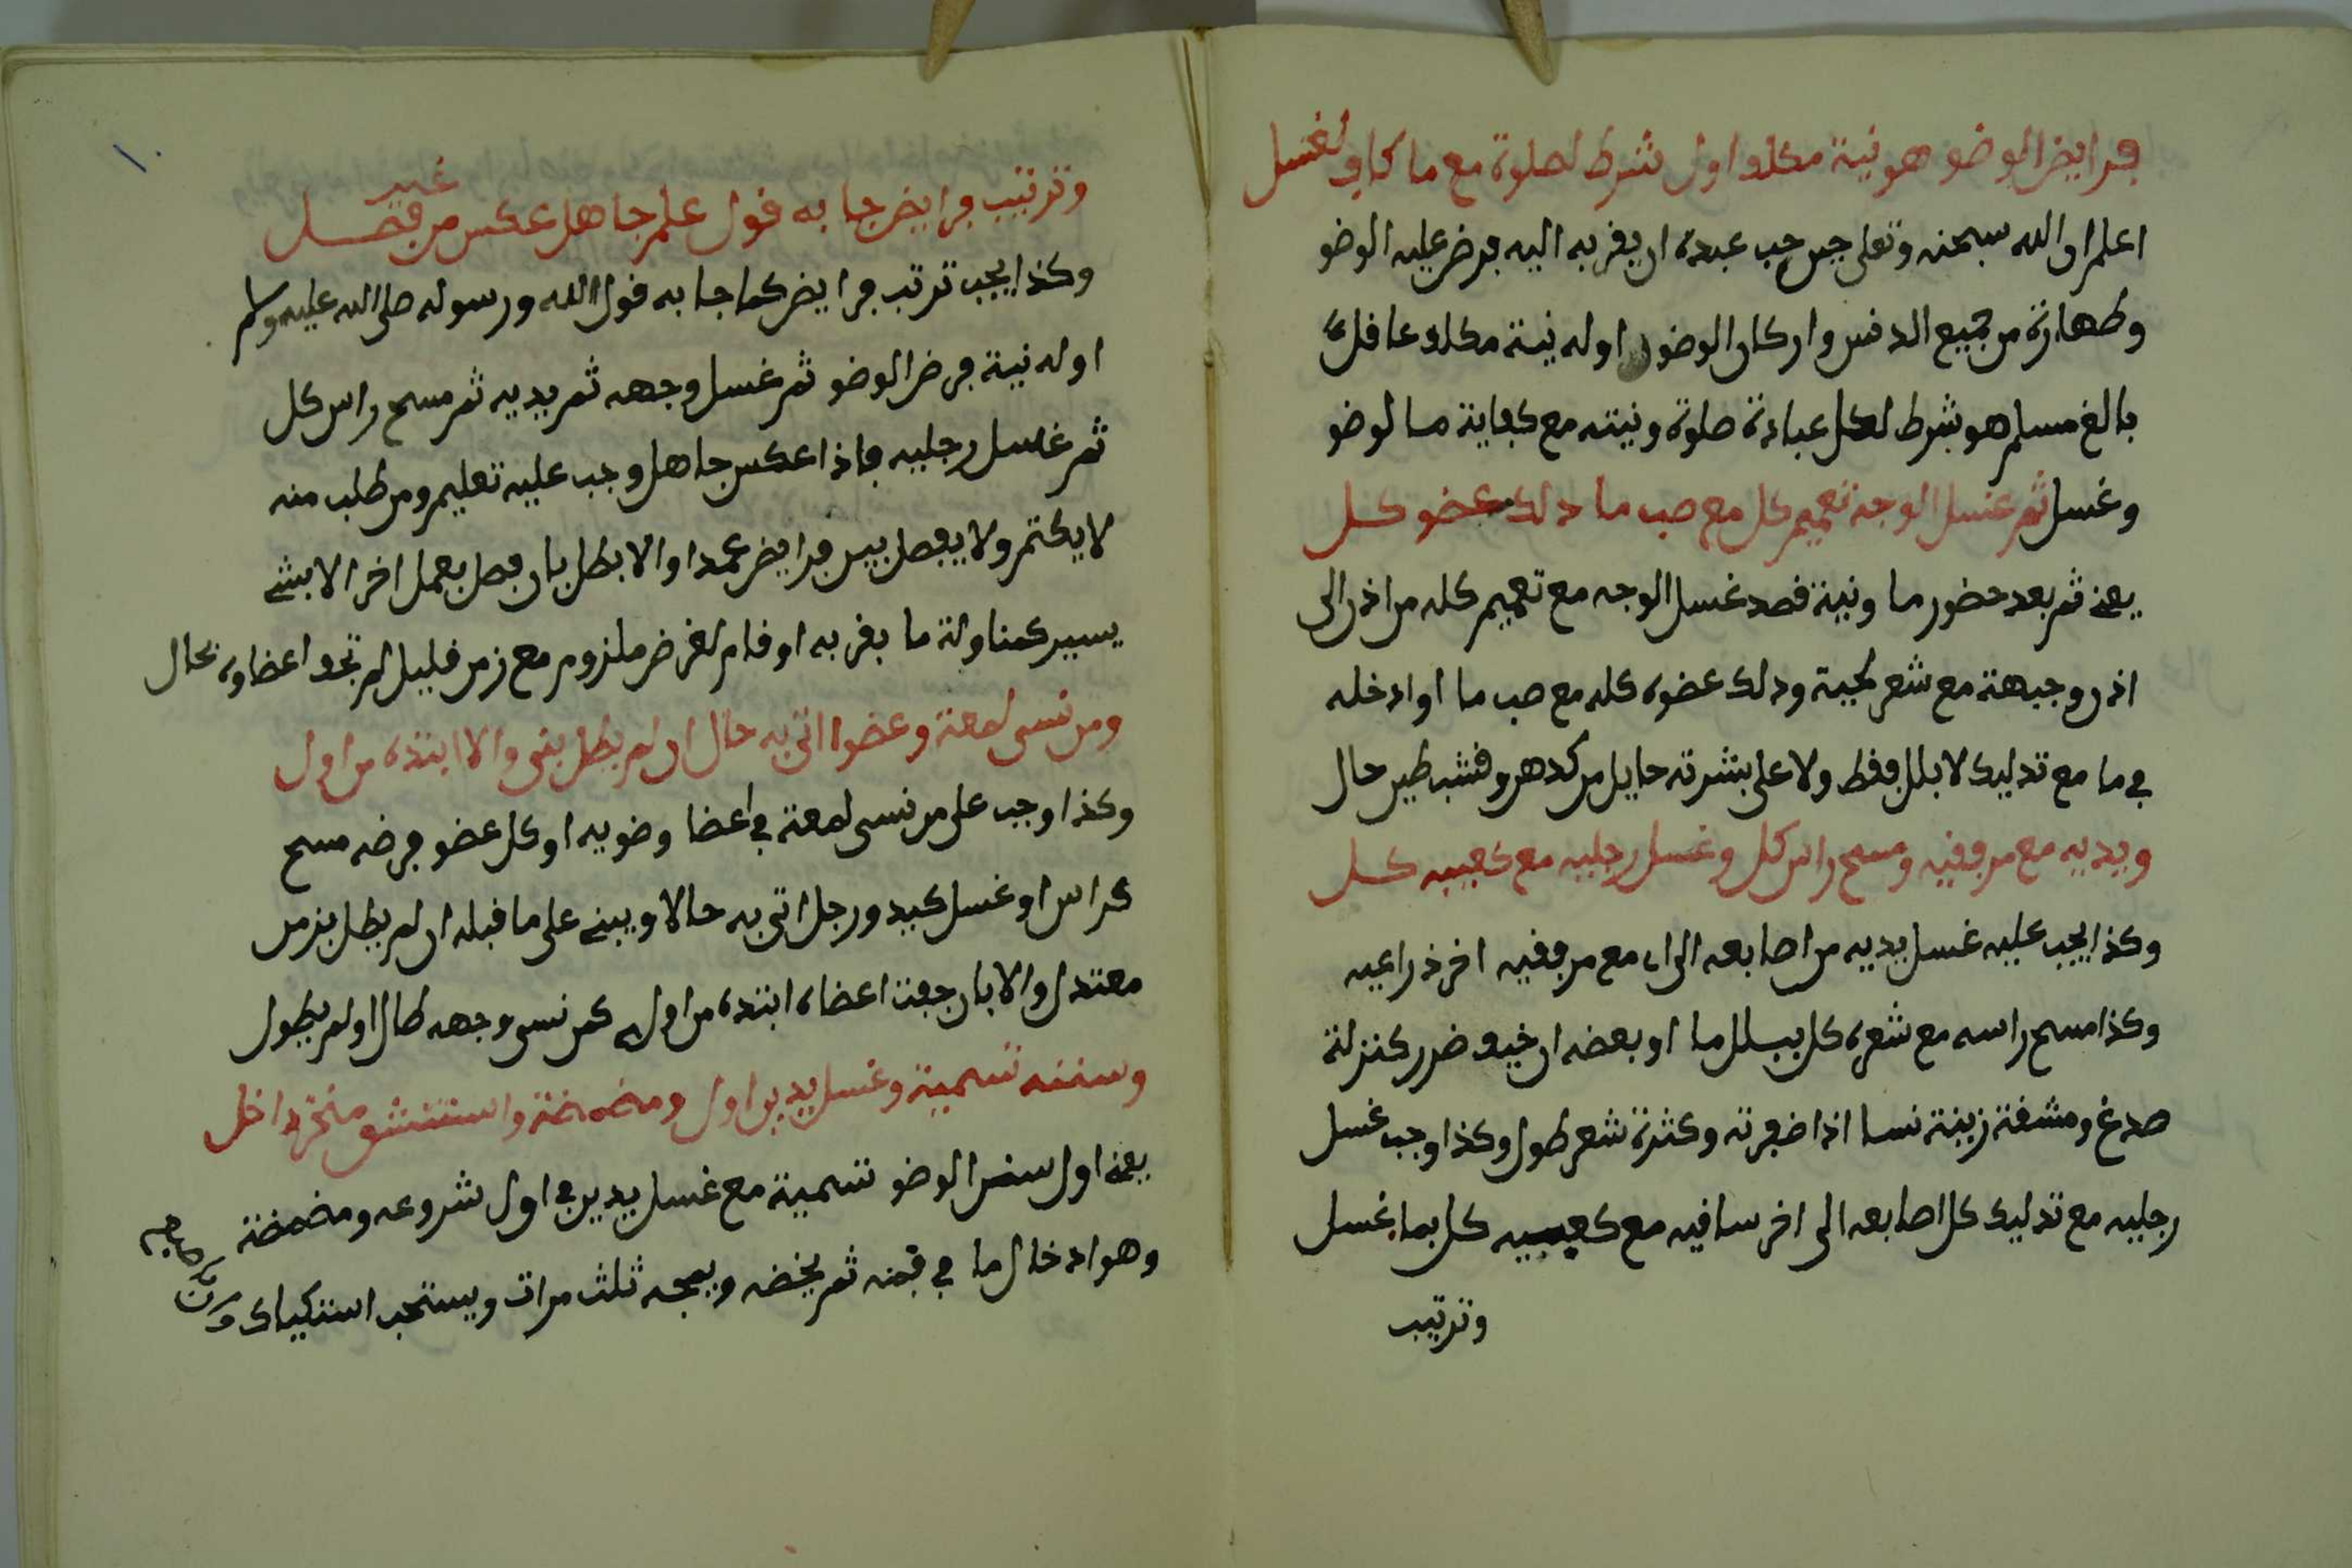 فرايض الوضو هو نية مكلف اول شرط لصلوة مع ما كاف لغسل
اعلم ان الله سبحنه وتعلى حين حب عبده ان يقربه اليه فرض عليه الوضو
وطهارة من جميع الدنس واركان الوضو اوله نية مكلف عاقل
بالغ مسلم هو شرط لكل عبادة صلوة ونيته مع كفاية ما لوضو
وغسل ثم غسل الوجه تعميم كل مع صب ما دلك عضو كل
يعني ثم بعد حضور ما ونية قصد غسل الوجه مع تعميم كله من اذن الى
اذن وجبهة مع شعر لحية ودلك عضوه كله مع صب ما او ادخله
في ما مع تدليك لا بلل فقط ولا على بشرته حايل من كدهن وقشب طين حال
ويديه مع مرفقيه ومسح راس كل وغسل رجليه مع كعبيه كل
وكذا يجب عليه غسل يديه من اصابعه الى مع مرفقيه اخر ذراعيه
وكذا مسح راسه مع شعره كل ببلل ما او بعضه ان خيف ضرر كنزلة
صدغ ومشقة زينة نسا اذا ضفرته وكثرة شعر طول وكذا وجب غسل
رجليه مع تدليك كل اصابعه الى اخر ساقيه مع كعبيه كل بما غسل
وترتيب
وترتيب فرايض جا به قول علم جاهل عكس من غير فصل
وكذا يجب ترتب فرايض كما جا به قول الله ورسوله صلى الله عليه وسلم
اوله نية فرض الوضو ثم غسل وجهه ثم يديه ثم مسح راس كل
ثم غسل رجليه فاذا عكس جاهل وجب عليه تعليم ومن طلب منه
لا يكتم ولا يفصل بين فرايض عمدا والا بطل بان فصل بعمل اخر الا بشي
يسير كمناولة ما بقربه او قام لغرض ملزوم مع زمن قليل لم تجف اعضاوه بحال
ومن نسى لمعة وعضوا اتى به حال ان لم يطل بنى والا ابتده من اول
وكذا وجب على من نسى لمعة في اعضا وضويه او كل عضو فرضه مسح
كراس او غسل كيد ورجل اتى به حالا ويبني على ما قبله ان لم يطل بزمن
معتدل والا بان جفت اعضاه ابتده من اوله كمن نسى وجهه طال او لم يطول
وسننه تسمية وغسل يدين اول ومضمضة واستنشق منخر داخل
يعني اول سنن الوضو تسمية مع غسل يدين في اول شروعه ومضمضة
وهو ادخال ما في فمه ثم يخضه ويمجه ثلث مرات ويستحب استياك